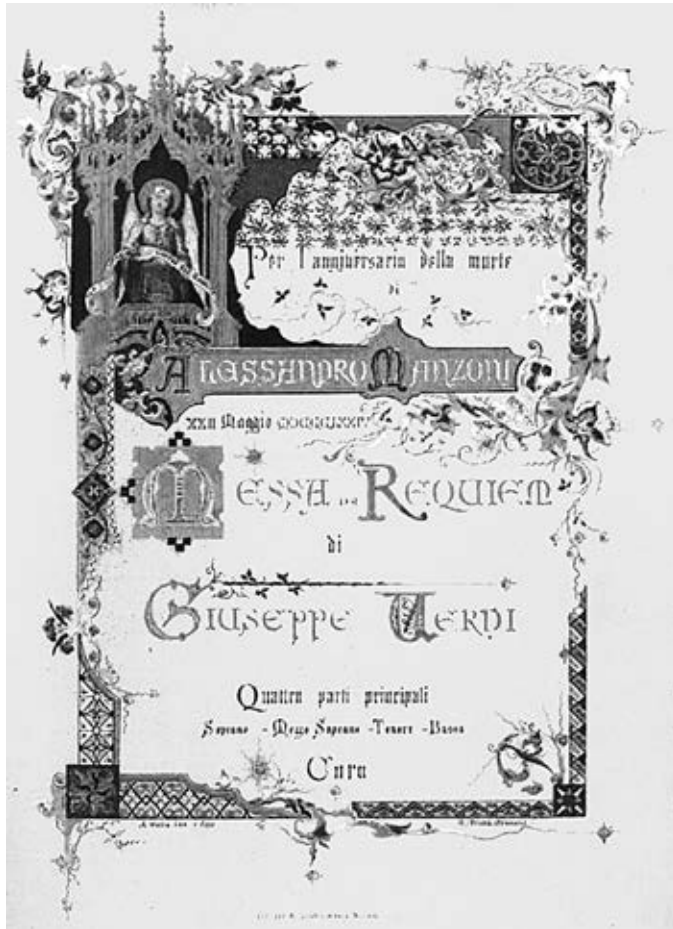 Per l'anniversario della morte
di
ALESSANDRO MANZONI
XXII Maggio MDCCCLXXIV
MESSA DA REQUIEM
di
GIUSEPPE VERDI
Quattro parti principali
Soprano - Mezzo Soprano - Tenore - Basso
Coro